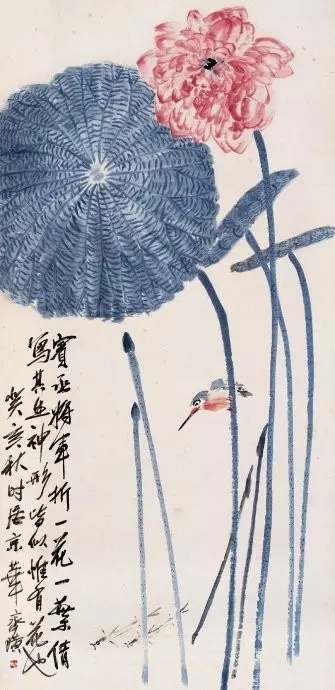 寶丞將軍折一花一葉倩
寫其照神形皆似惟有花也
癸亥秋時居京華齊璜